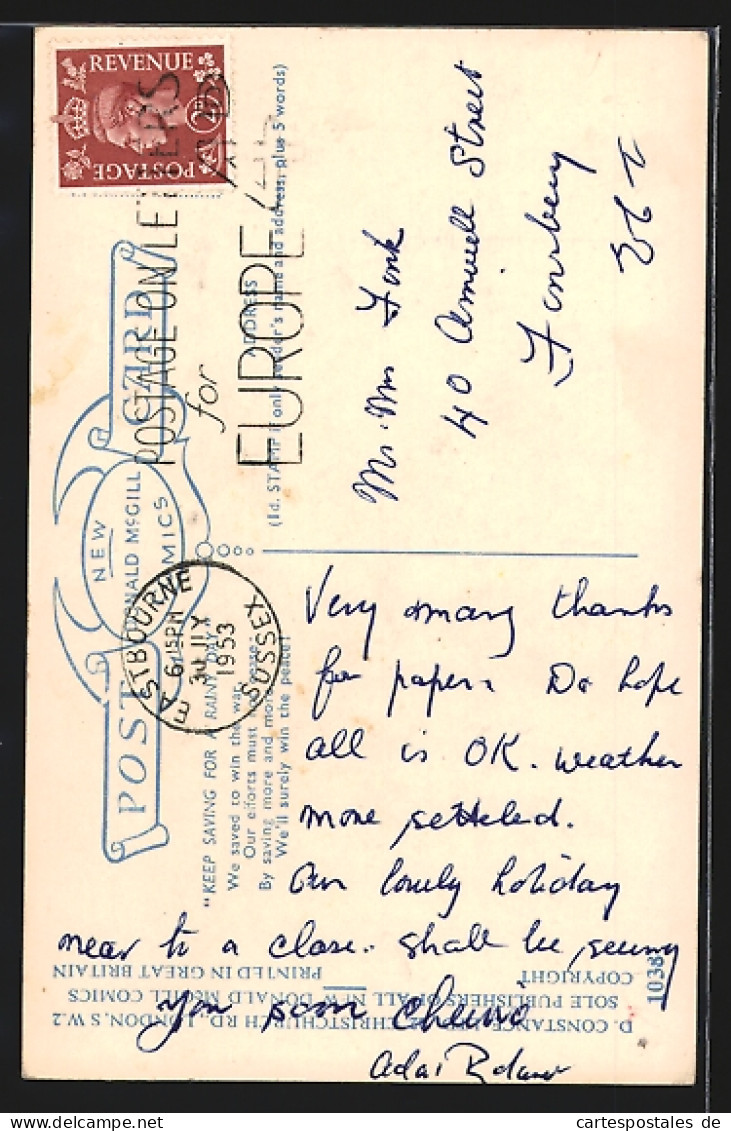 REVENUE
POSTAGE
2D
POSTAGE ON LETTERS
for
EUROPE
EASTBOURNE
6 15 PM
30 IX
1953
SUSSEX
POST CARD
NEW
DONALD McGILL
COMICS
ADDRESS
(1d. STAMP if only sender's name and address, plus 5 words)
"KEEP SAVING FOR A RAINY DAY"
We saved to win the war,
Our efforts must not cease.
By saving more and more
We'll surely win the peace!
Mr. Mrs
40 Amwell Street
Finsbury
E C 1
Very many thanks
for papers Do hope
all is OK. weather
more setteled.
Our lovely holiday
near to a close. shall be seeing
you soon Cheerio
D. CONSTANCE, LTD., CHRISTCHURCH RD., LONDON, S.W.2
SOLE PUBLISHERS OF ALL NEW DONALD McGILL COMICS
COPYRIGHT PRINTED IN GREAT BRITAIN
1038
© cartespostales de - delcampe.net